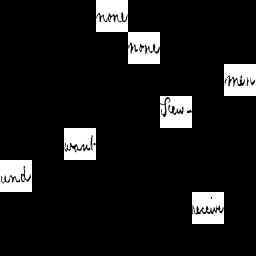 none
none
men
Stew-
want
and
receive